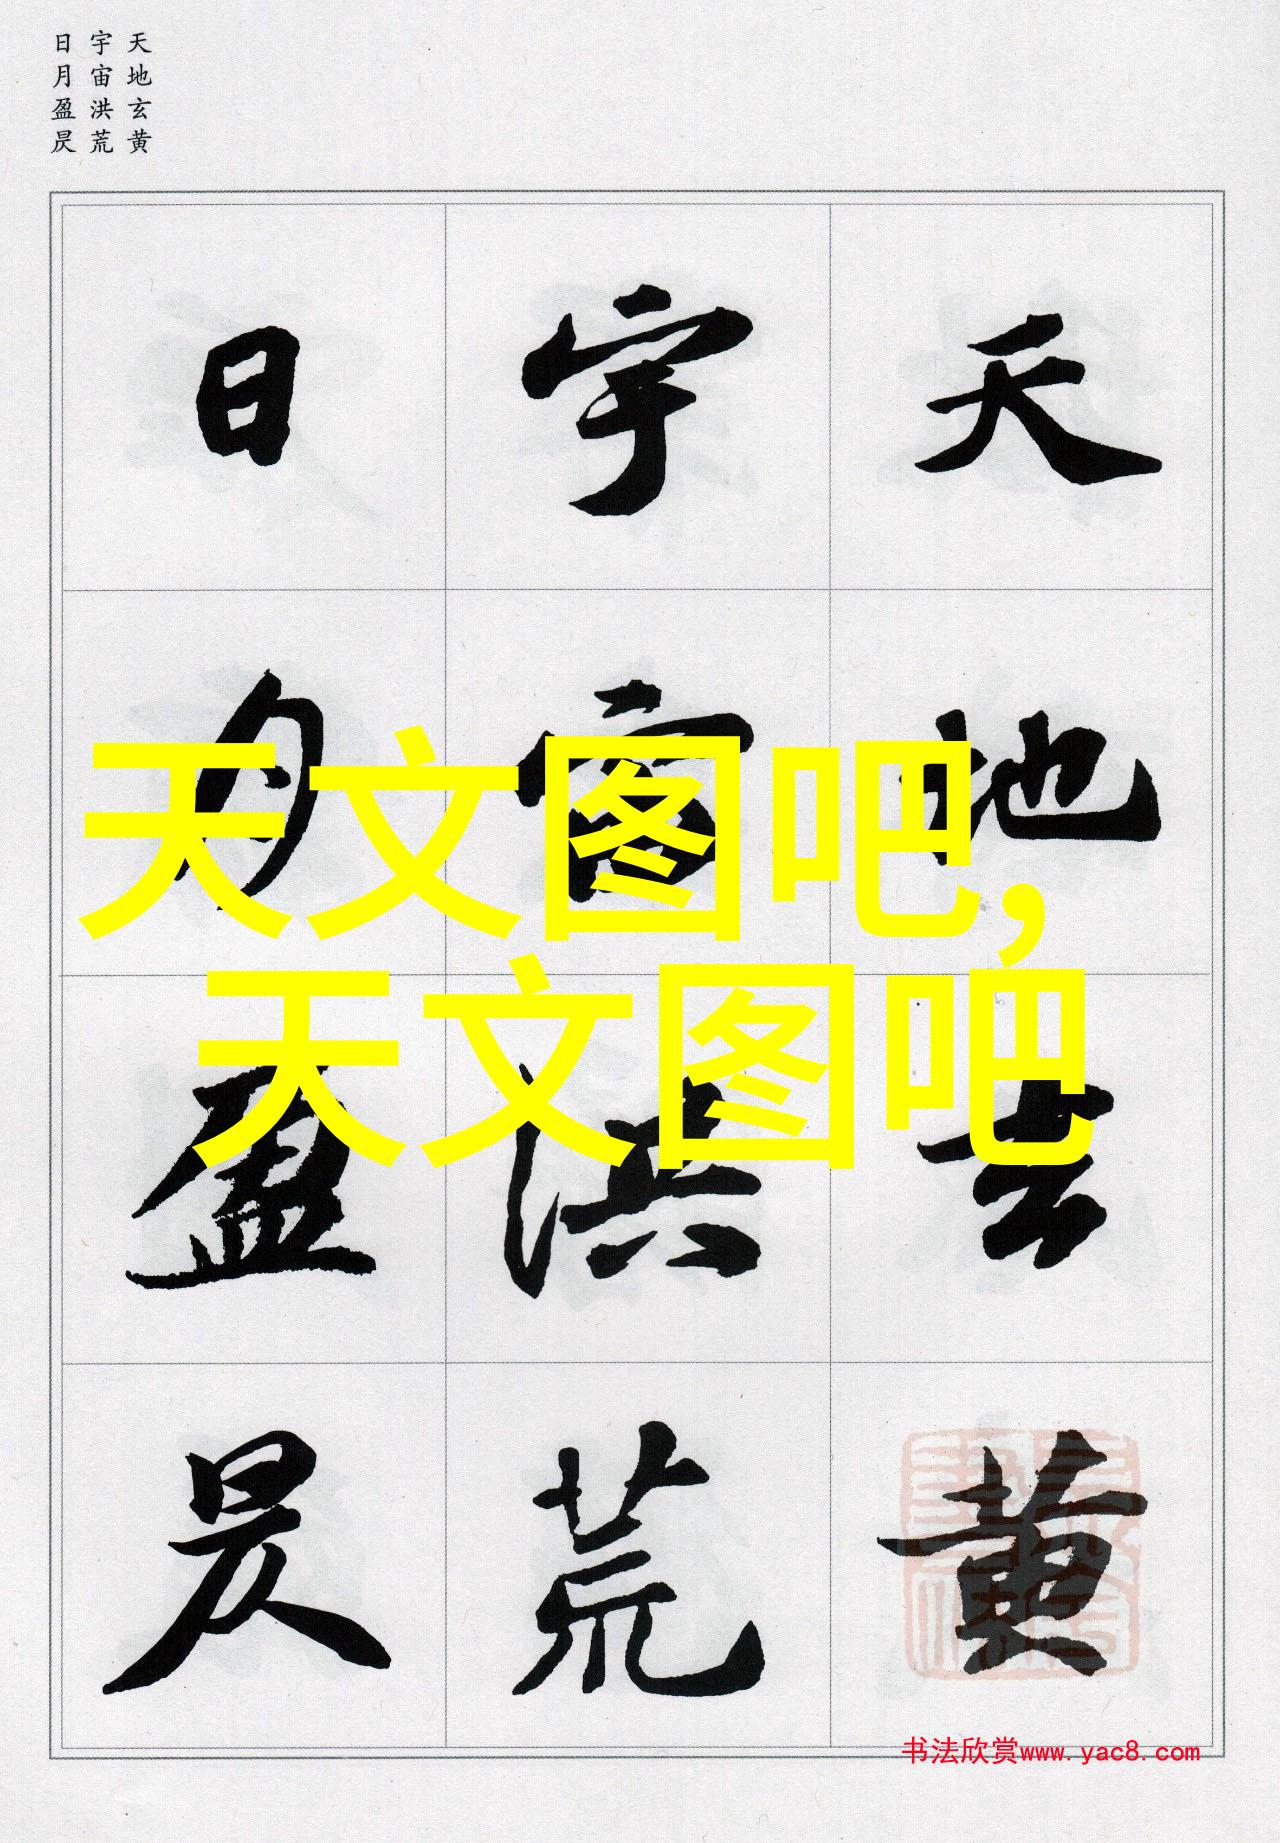 天地玄黄
宇宙洪荒
日月盈昃
天地玄黄
宇宙洪荒
日月盈昃
天文图吧,
天文图吧
书法欣赏www.yac8.com